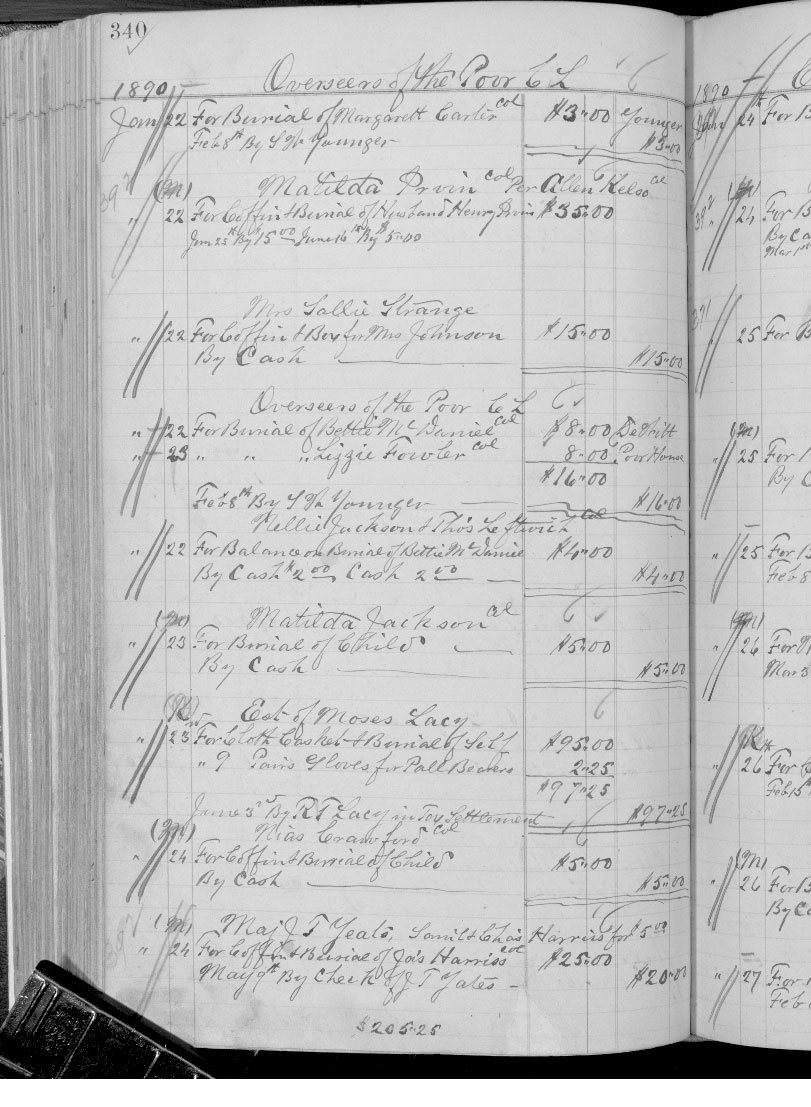 340
1890 Overseers of the Poor C L
Jan 22 For Burial of Margarett Carter col $3.00 Younger
Feb 8th By S W Younger $3.00
(M) Matilda Irvin col Per Allen Kelso col
" 22 For Coffin & Burial of Husband Henry Irvin $35.00
Jan 25th By 15 00 June 16th By $5.00
Mrs Sallie Strange
" 22 For Coffin & Box for Mrs Johnson $15.00
By Cash $15.00
Overseers of the Poor C L
" 22 For Burial of Bettie McDaniel col $8.00 DeWitt
" 23 " " " Lizzie Fowler col 8.00 Poor House
$16.00
Feb 8th By S W Younger $16.00
Nellie Jackson & Thos Leftwich col
" 22 For Balance on Burial of Bettie McDaniel $4.00
By Cash $2 00 Cash 2 00 $4.00
(M) Matilda Jackson col
" 23 For Burial of Child $5.00
By Cash $5.00
Est of Moses Lacy
" 23 For Cloth Casket & Burial of Self $95.00
" 9 Pairs Gloves for Pall Bearers 2.25
$97.25
By R T Lacy in Tax Settlement $97.25
(M) Nias Crawford col
" 24 For Coffin & Burial of Child $5.00
By Cash $5.00
(M) Maj J T Yeats, Saml & Chas Harris for $5 00
" 24 For Coffin & Burial of Jas Harriss col $25.00
May 9th By Check of J T Yates $20.00
$205.25
1890
Jan 24th For B
(M)
" 24 For B
By Ca
Mar 1st
25 For B
(M)
" 25 For
By C
" 25 For B
Feb 8
(M)
" 26 For
Mar 3
" 26 For C
Feb 15th
(M)
" 26 For B
By Ca
" 27 For
Feb